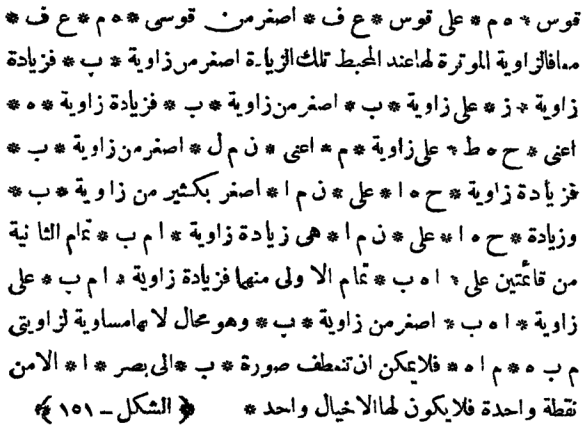 قوس * ه م * على قوس * ع ف * اصغر من قوسى * ه م * ع ف *
معافالزاوية الموترة لهاعند المحيط تلك الزيادة اصغر من زاوية * ب * فزيادة
زاوية * ز * على زاوية * ب * اصغر من زاوية * ب * فزيادة زاوية * ه *
اعنى * ح ه ط * على زاوية * م * اعنى * ن م ل * اصغر من زاوية * ب *
فزيادة زاوية * ح ه ا * على * ن م ا * اصغر بكثير من زاوية * ب *
وزيادة * ح ه ا * على * ن م ا * هى زيادة زاوية * ا م ب * تمام الثانية
من قائمتين على * ا ه ب * تمام الاولى منهما فزيادة زاوية * ا م ب * على
زاوية * ا ه ب * اصغر من زاوية * ب * وهو محال لانهامساوية لزاويتى
م ب ه * م ا ه * فلايمكن ان تنعطف صورة * ب * الى بصر * ا * الامن
نقطة واحدة فلايكون لهاالاخيال واحد * ﴿ الشكل – ١٥١ ﴾